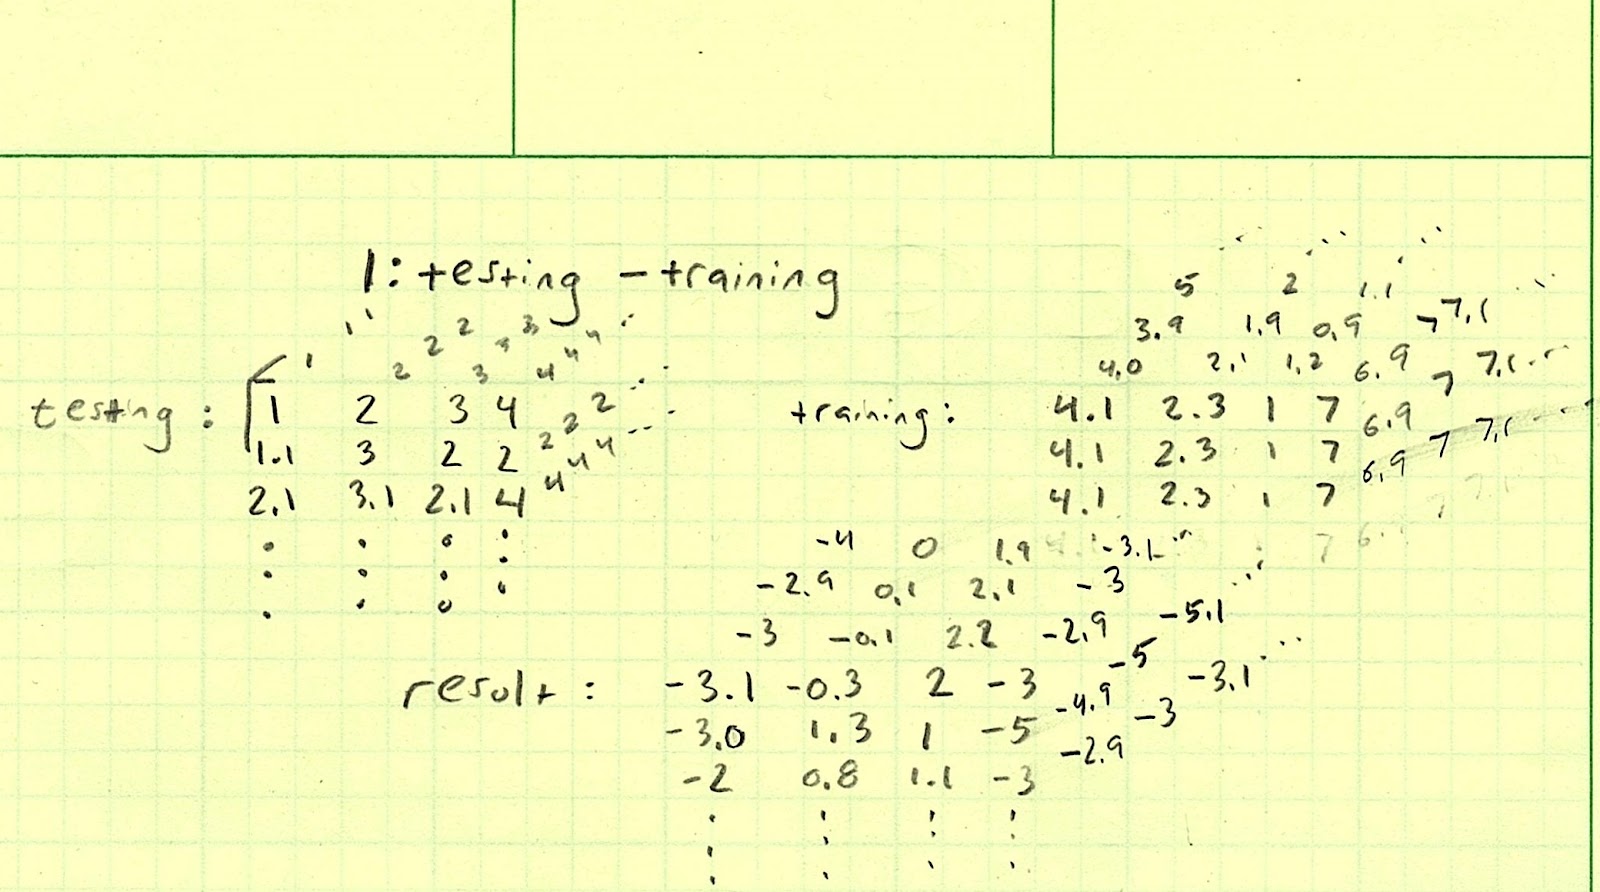 1: testing - training
5 2 1.1
3.9 1.9 0.9 7 7.1
4.0 2.1 1.2 6.9 7 7.1
1 1 1 2 2 2 3 3 4 4 4
testing: 1 2 3 4 2 2 2
1.1 3 2 2 4 4 4
2.1 3.1 2.1 4
training: 4.1 2.3 1 7 6.9 7 7.1
4.1 2.3 1 7 6.9
4.1 2.3 1 7
-4 0 1.9 -3.1
-2.9 0.1 2.1 -3
-3 -0.1 2.2 -2.9 -5.1
result: -3.1 -0.3 2 -3 -4.9 -5
-3.0 1.3 1 -5 -2.9 -3 -3.1
-2 0.8 1.1 -3